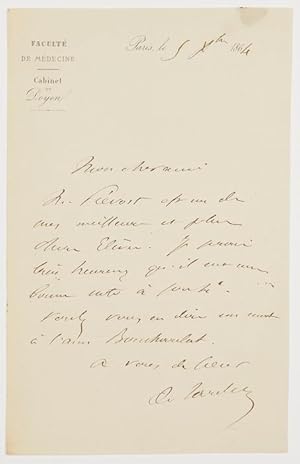 FACULTÉ
DE MÉDECINE
Cabinet
DU
Doyen
Paris, le 5 Xbre 1864
Mon cher ami
M. Prévost est un de
mes meilleurs et plus
chers Elèves. Je serais
très heureux qu'il eut une
bonne note à
Voulez vous en dire un mot
à l'ami Bouchardat.
a vous de coeur
A. Tardieu